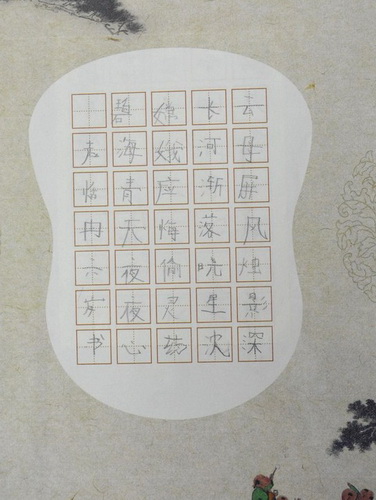 云母屏风烛影深
长河渐落晓星沉
嫦娥应悔偷灵药
碧海青天夜夜心
六岁书